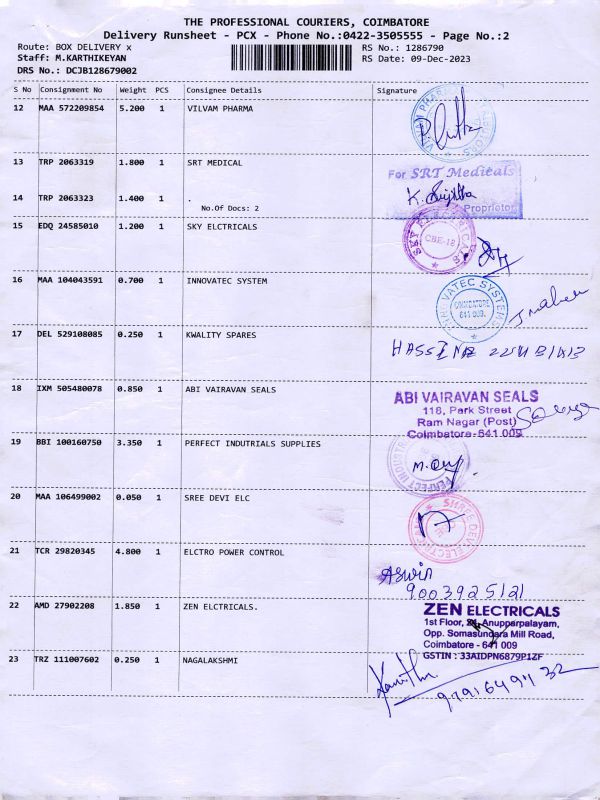 THE PROFESSIONAL COURIERS, COIMBATORE
Delivery Runsheet - PCX - Phone No.:0422-3505555 - Page No.:2
Route: BOX DELIVERY x
RS No.: 1286790
Staff: M.KARTHIKEYAN
RS Date: 09-Dec-2023
DRS No.: DCJB128679002
S No Consignment No Weight PCS Consignee Details Signature
12 MAA 572209854 5.200 1 VILVAM PHARMA
VILVAM PHARMA
13 TRP 2063319 1.800 1 SRT MEDICAL
For SRT Medicals
14 TRP 2063323 1.400 1 .
K. Sujitha
No.Of Docs: 2
Proprietor
15 EDQ 24585010 1.200 1 SKY ELCTRICALS
CBE-18
16 MAA 104043591 0.700 1 INNOVATEC SYSTEM
VATEC SYSTEMS
COIMBATORE
641 009.
17 DEL 529108085 0.250 1 KWALITY SPARES
HASSINA
18 IXM 505480078 0.850 1 ABI VAIRAVAN SEALS
ABI VAIRAVAN SEALS
118, Park Street
Ram Nagar (Post)
Coimbatore-641 009
19 BBI 100160750 3.350 1 PERFECT INDUTRIALS SUPPLIES
PERFECT INDUSTR
20 MAA 106499002 0.050 1 SREE DEVI ELC
SHREE DEVI ELECTRICALS
21 TCR 29820345 4.800 1 ELCTRO POWER CONTROL
Aswin
9003925121
22 AMD 27902208 1.850 1 ZEN ELCTRICALS.
ZEN ELECTRICALS
1st Floor, Anupparpalayam,
Opp. Somasundara Mill Road,
Coimbatore - 641 009
GSTIN : 33AIDPN6879P1ZF
23 TRZ 111007602 0.250 1 NAGALAKSHMI